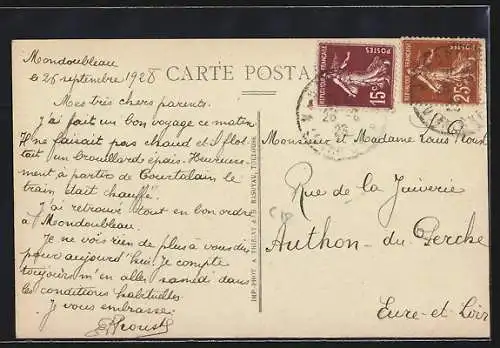 Mondoubleau
le 26 septembre 1928
CARTE POSTA
Mes très chers parents.
J'ai fait un bon voyage ce matin.
Il ne faisait pas chaud et il flot-
tait un brouillard épais. Heureuse-
ment à partir de Courtalain le
train était chauffé.
J'ai retrouvé tout en bon ordre
à Mondoubleau.
Je ne vois rien de plus à vous dire
pour aujourd'hui. Je compte
toujours m'en aller samedi dans
les conditions habituelles.
Je vous embrasse.
IMP.-PHOT. A. THIRIAT & Cie BASUYAU, TOULOUSE
REPUBLIQUE FRANÇAISE
POSTES
15c
REPUBLIQUE FRANÇAISE
POSTES
25c
Monsieur et Madame Louis
Rue de la Juiverie
Authon-du-Perche
Eure-et-Loir